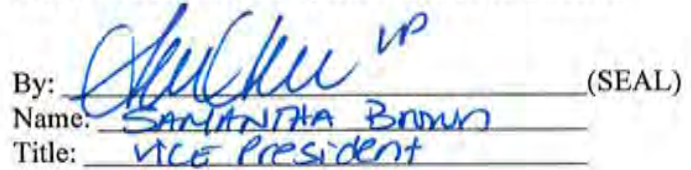 VP
By: (SEAL)
Name: SAMANTHA Brown
Title: VICE President